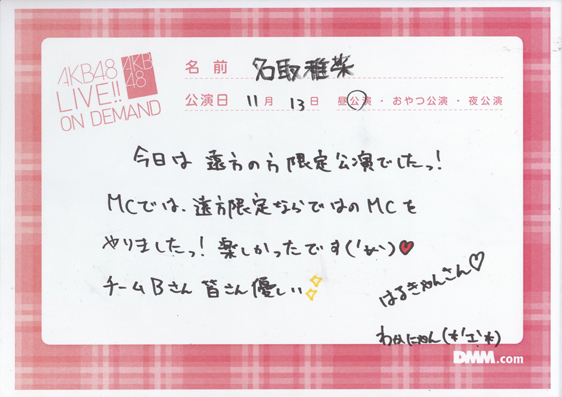 AKB48
LIVE!!
ON DEMAND
AKB
48
名前 名取稚菜
公演日 11月 13日 昼公演・おやつ公演・夜公演
今日は 遠方の方 限定公演でしたっ!
MCでは、遠方限定ならではのMCを
やりましたっ! 楽しかったです
チームBさん 皆さん優しい
はるきゃんさん♡
わかにゃん(*'ェ'*)
DMM.com